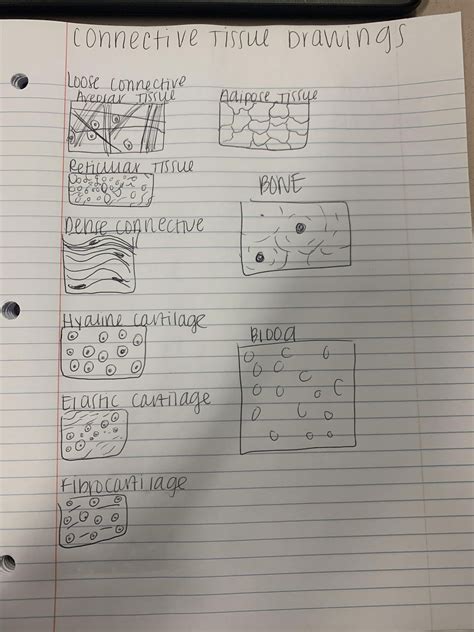 Connective Tissue Drawings
Loose connective
Areolar Tissue
Adipose Tissue
Reticular Tissue
BONE
Dense connective
Hyaline cartilage
Blood
Elastic cartilage
Fibrocartilage